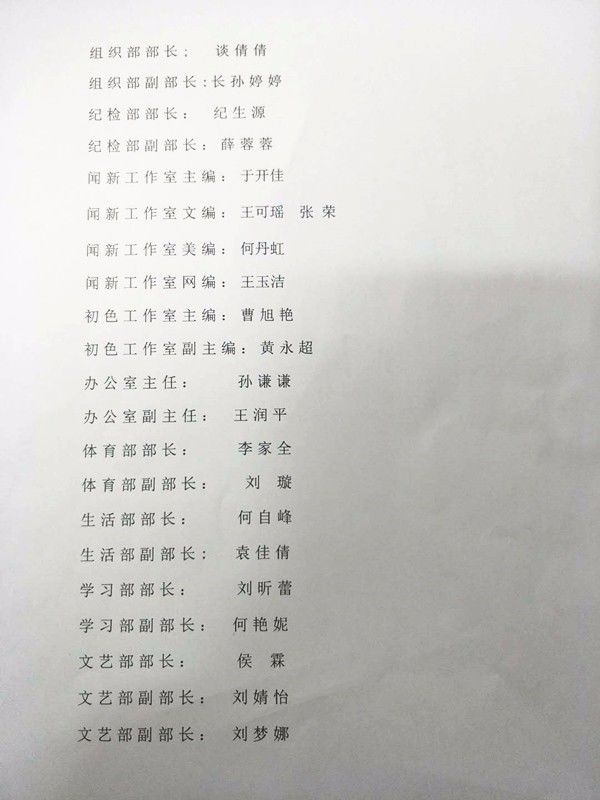 组织部部长: 谈倩倩
组织部副部长:长孙婷婷
纪检部部长: 纪生源
纪检部副部长: 薛蓉蓉
闻新工作室主编: 于开佳
闻新工作室文编: 王可瑶 张 荣
闻新工作室美编: 何丹虹
闻新工作室网编: 王玉洁
初色工作室主编: 曹旭艳
初色工作室副主编: 黄永超
办公室主任: 孙谦谦
办公室副主任: 王润平
体育部部长: 李家全
体育部副部长: 刘 璇
生活部部长: 何自峰
生活部副部长; 袁佳倩
学习部部长: 刘昕蕾
学习部副部长: 何艳妮
文艺部部长: 侯 霖
文艺部副部长: 刘婧怡
文艺部副部长: 刘梦娜